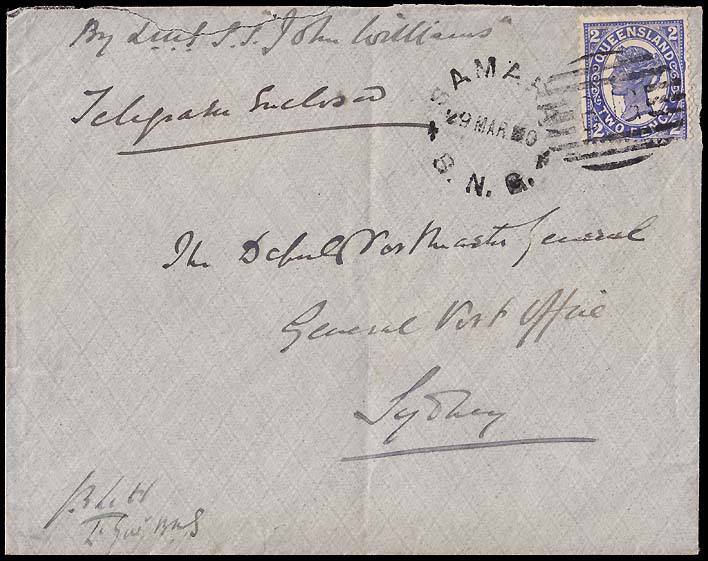 By Lieut S.S. "John Williams"
Telegram Enclosed
SAMAR
29 MAR
B. N. G.
2 QUEENSLAND 2
2 TWO PENCE 2
The Deputy Postmaster General
General Post Office
Sydney